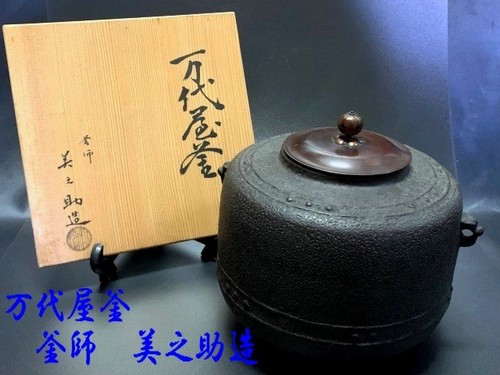 万代屋釜
釜師
美之助造
万代屋釜
釜師　美之助造